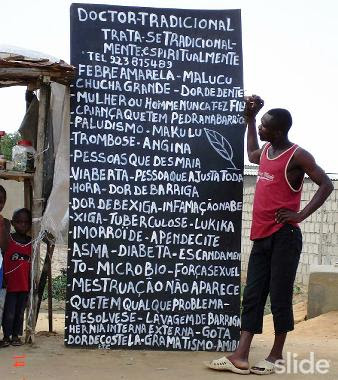 DOCTOR-TRADICIONAL
TRATA-SE TRADICIONAL-
MENTE, ESPIRITUALMENTE
TEL 923815489
FEBRE AMARELA-MALUCU
CHUCHA GRANDE-DOR DE DENTE
MULHER OU HOMEM NUNCA FEZ FILH
CRIANÇA QUE TEM PEDRA NA BARRIGA
PALUDISMO-MAKULU
TROMBOSE-ANGINA
PESSOAS QUE DESMAIA
VIA BERTA-PESSOA QUE AJUSTA TODA
HORA-DOR DE BARRIGA
DOR DE BEXIGA-INFAMAÇÃO NA BE
XIGA-TUBERCULOSE-LUKIKA
IMORROÍDE-APENDECITE
ASMA-DIABETA-ESCANDAMEN
TO-MICROBIO-FORÇA SEXUAL
MESTRUAÇÃO NÃO APARECE
QUE TEM QUALQUE PROBLEMA-
RESOLVESE-LAVAGEM DE BARRIGA
HERNIA INTERNA EXTERNA-GOTA
DOR DE COSTELA-GRAMATISMO-AMIB
slide